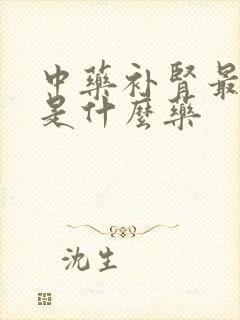 中藥补肾最
是什麼藥
沈生